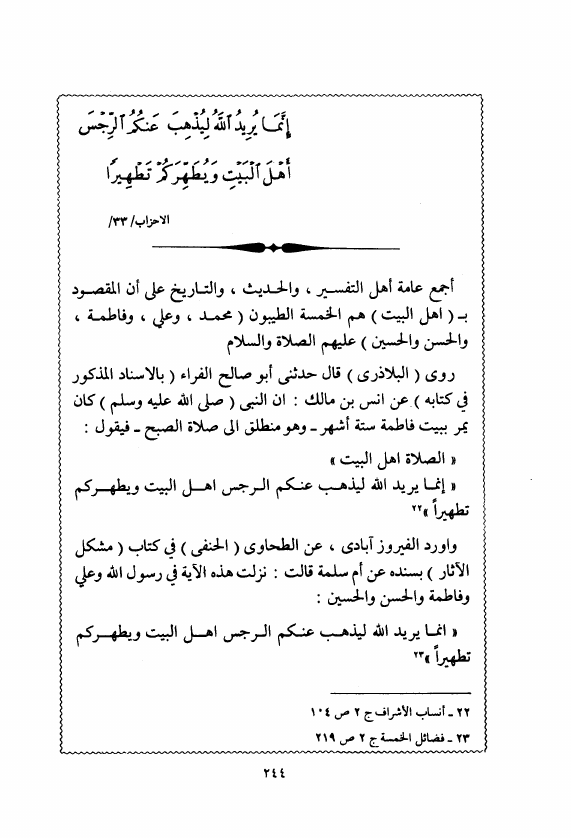 إِنَّمَا يُرِيدُ ٱللَّهُ لِيُذْهِبَ عَنكُمُ ٱلرِّجْسَ
أَهْلَ ٱلْبَيْتِ وَيُطَهِّرَكُمْ تَطْهِيرًا
الاحزاب/ ٣٣/
أجمع عامة أهل التفسير ، والحديث ، والتاريخ على أن المقصود
بـ ( اهل البيت ) هم الخمسة الطيبون ( محمد ، وعلي ، وفاطمة ،
والحسن والحسين ) عليهم الصلاة والسلام
روى ( البلاذرى ) قال حدثنى أبو صالح الفراء ( بالاسناد المذكور
في كتابه ) عن انس بن مالك : ان النبى ( صلى الله عليه وسلم ) كان
يمر ببيت فاطمة ستة أشهر ــ وهو منطلق الى صلاة الصبح ــ فيقول :
« الصلاة اهل البيت »
« إنما يريد الله ليذهب عنكم الرجس اهل البيت ويطهركم
تطهيراً »٢٢
واورد الفيروز آبادى ، عن الطحاوى ( الحنفى ) في كتاب ( مشكل
الآثار ) بسنده عن أم سلمة قالت : نزلت هذه الآية في رسول الله وعلي
وفاطمة والحسن والحسين :
« انما يريد الله ليذهب عنكم الرجس اهل البيت ويطهركم
تطهيراً »٢٣
٢٢ ـ أنساب الأشراف ج ٢ ص ١٠٤
٢٣ ـ فضائل الخمسة ج ٢ ص ٢١٩
٢٤٤